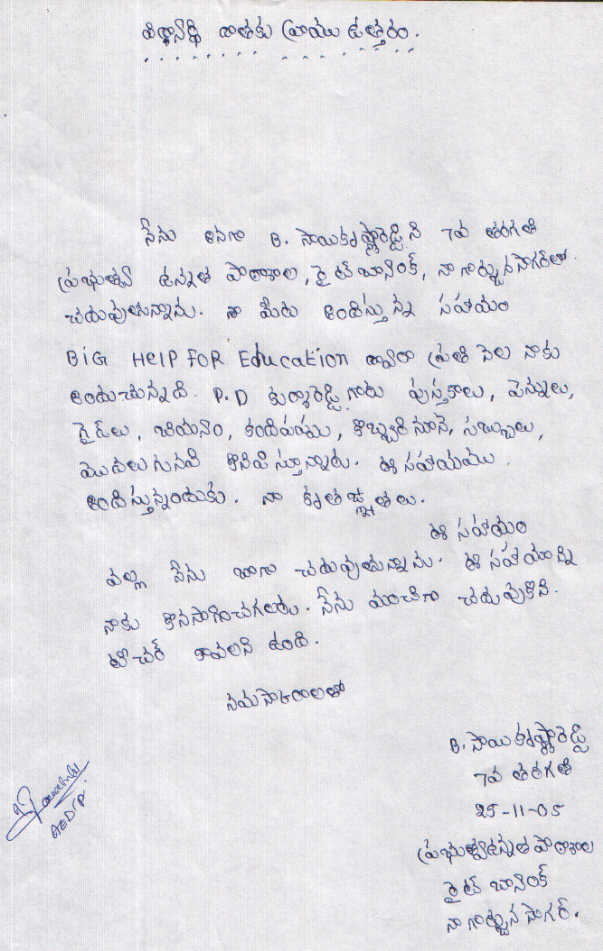 విద్యార్థి దాతకు వ్రాయు ఉత్తరం.
నేను అనగా B. సాయికృష్ణారెడ్డిని 7వ తరగతి
ప్రభుత్వ ఉన్నత పాఠశాల, రైట్ బ్యాంక్, నాగార్జునసాగర్‌లో
చదువుతున్నాను. నా మీరు అందిస్తున్న సహాయం
BiG HelP FOR Education ద్వారా ప్రతి నెల నాకు
అందుచున్నది. P.D కృష్ణారెడ్డి గారు పుస్తకాలు, పెన్నులు,
గైడ్‌లు, బియ్యం, కందిపప్పు, కొబ్బరినూనె, సబ్బులు,
మొదలుగునవి కొనిపిస్తున్నారు. ఈ సహాయము
అందిస్తున్నందుకు. నా కృతజ్ఞతలు.
ఈ సహాయం
వల్ల నేను బాగా చదువుతున్నాను. ఈ సహాయాన్ని
నాకు కొనసాగించగలరు. నేను మంచిగా చదువుకొని.
టీచర్ కావలని ఉంది.
నమస్కారాలతో
B. సాయికృష్ణారెడ్డి
7వ తరగతి
25-11-05
ప్రభుత్వఉన్నత పాఠశాల
రైట్ బ్యాంక్
నాగార్జున సాగర్.